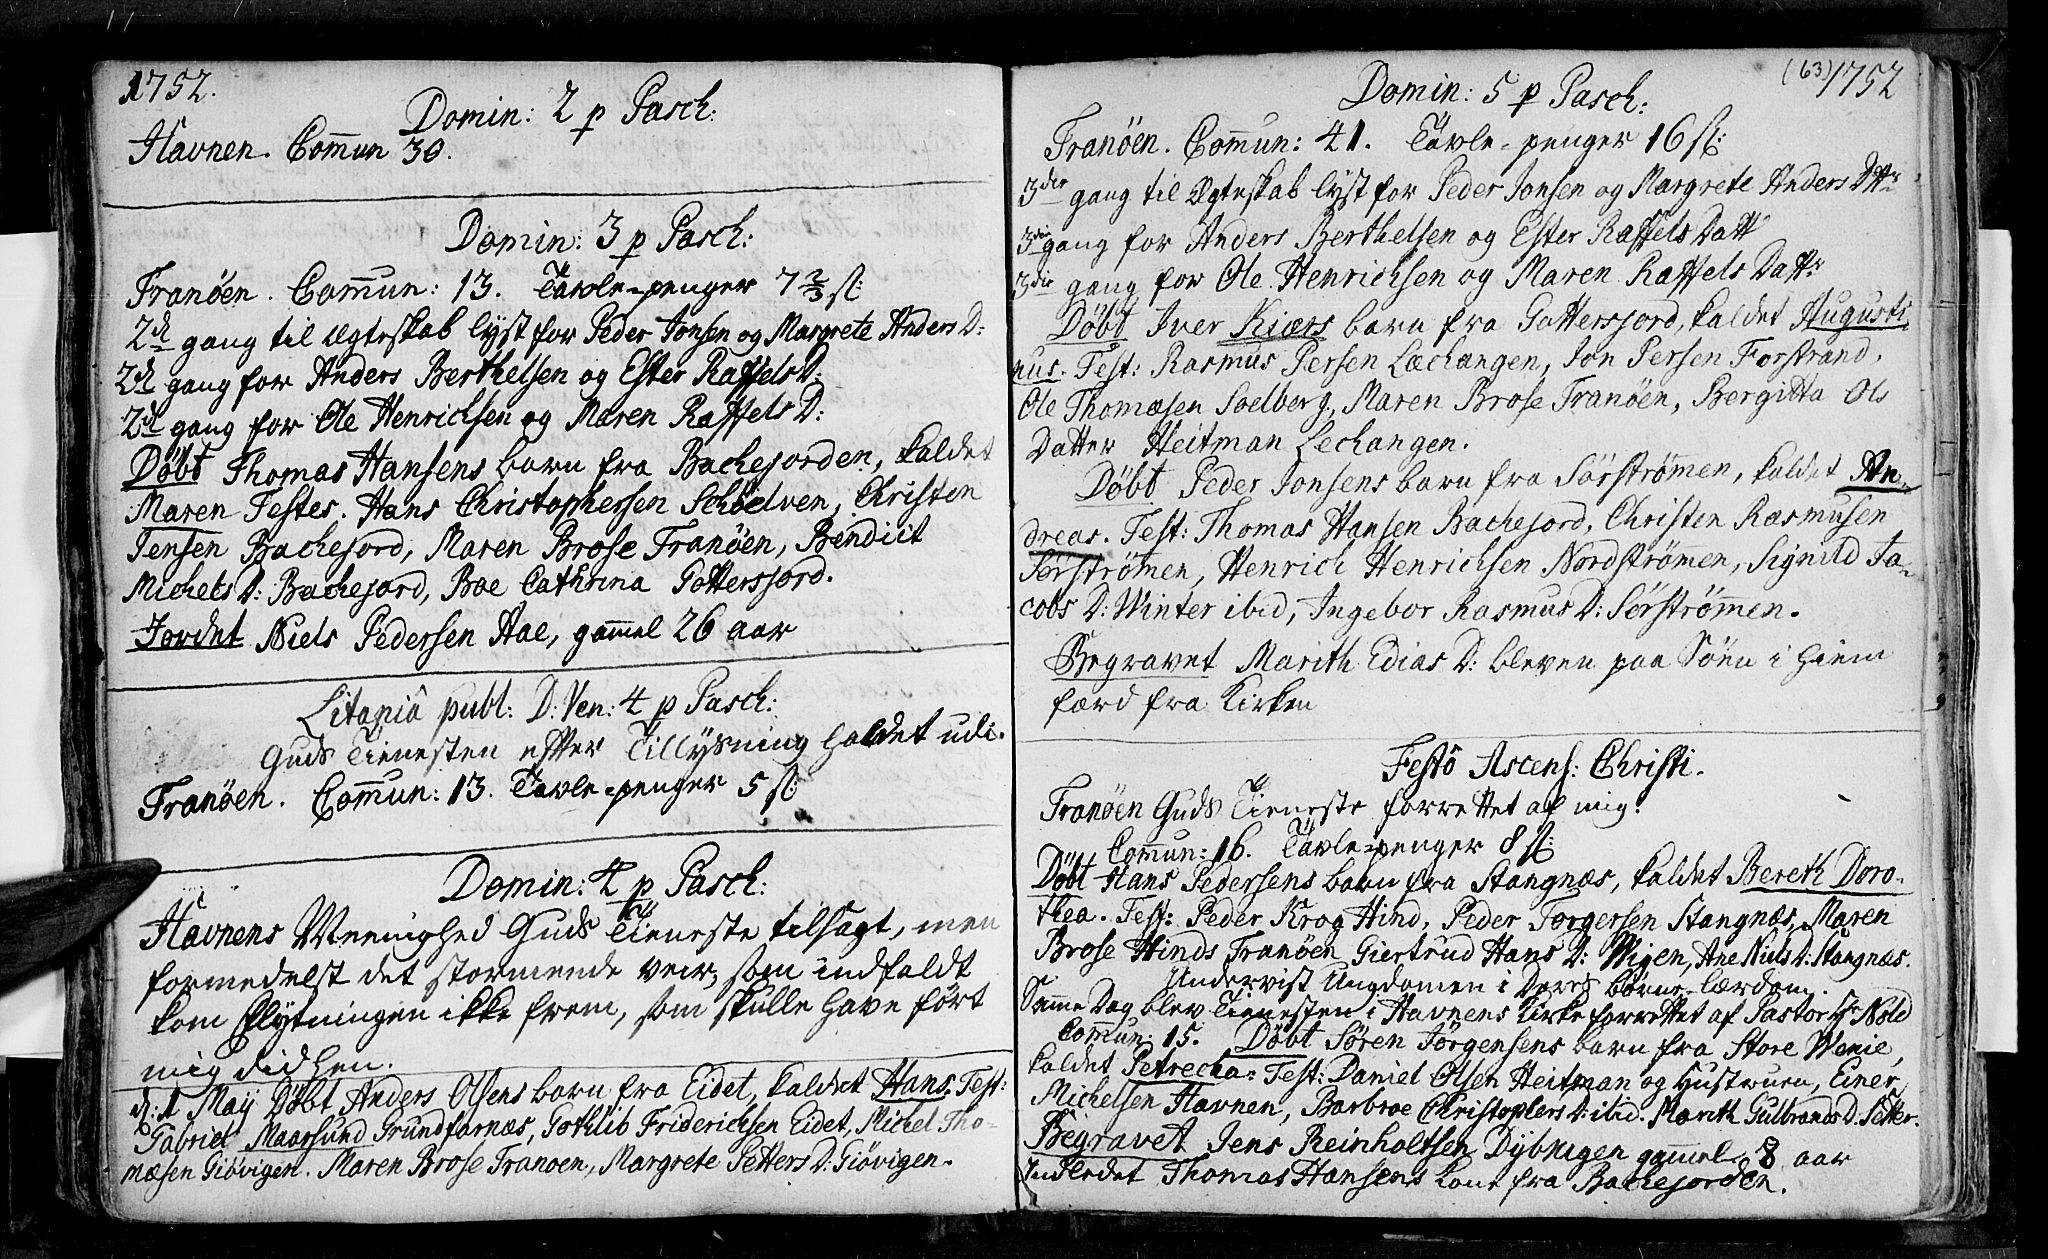 1752.
Domin: 2 p Pasch:
Havnen. Com̄un 30.
Domin: 3 p Pasch:
Tranöen. Com̄un: 13. Tavle-penger 7 2/3 sl:
2de gang til Ægteskab lyst for Peder Jonsen og Margrete Anders D:
2de gang for Anders Berthelsen og Ester Raffels D:
2de gang for Ole Henrichsen og Maren Raffels D:
Döbt Thomas Hansens barn fra Bachejorden, kaldet
Maren Testes. Hans Christophersen Schöelven, Christen
Jensen Bachejord, Maren Brose Tranöen, Bendicit
Michels D: Bachejord, Boe Cathrina Gottersjord.
Jordet Niels Pedersen Aae, gam̄el 26 aar
Litaniâ publ: D: Ven: 4 p Pasch:
Guds Tienesten efter Tillysning holdet udi
Tranöen. Com̄un: 13. Tavle-penger 5 sl:
Domin: 4 p Pasch:
Havnens Meenighed Guds Tieneste tilsagt, men
formedelst det stormende veir, som indfaldt
kom flytningen ikke frem, som skulle have fört
mig did hen.
d: 1 Maij Döbt Anders Olsens barn fra Eidet, kaldet Hans. Test:
Gabriel Maarsund Grundfarnæs, Gothlib Friderichsen Eidet, Michel Tho-
mæsen Giövigen. Maren Brose Tranöen, Margrete Petters D: Giövigen.
(63) 1752
Domin: 5 p Pasch:
Tranöen. Com̄un: 41. Tavle-penger 16 sl:
3die gang til Ægteskab lyst for Peder Jonsen og Margrete Anders Dttr
3die gang for Anders Berthelsen og Ester Raffels Datt
3die gang for Ole Henrichsen og Maren Raffels Dattr
Döbt Iver Kiærs barn fra Gottersjord, kaldet Augusti-
nus. Test: Rasmus Persen Læchangen, Jon Persen Forstrand,
Ole Thomæsen Soelberg, Maren Brose Tranöen, Bergitta Ols
Datter Heitman Lechangen.
Döbt Peder Jonsens barn fra Sörströmen, kaldet An-
dreas. Test: Thomas Hansen Bachejord, Christen Rasmusen
Sörström̄en, Henrich Henrichsen Nordström̄en, Signild Ja-
cobs D: Winter ibid, Ingebor Rasmus D: Sörström̄en.
Begravet Marith Edias D: bleven paa Söen i hiem
færd fra Kirken
Festô Ascens: Christi.
Tranöen Guds Tieneste forrettet af mig.
Com̄un: 16. Tavle-penger 8 sl:
Döbt Hans Pedersens barn fra Stangnæs, kaldet Bereth Doro-
thea. Test: Peder Krog Hind, Peder Torgersen Stangnæs, Maren
Brose Hinds Tranöen Giertrud Hans D: Wigen, Ane Niels D: Stangnæs.
Undervist Ungdomen i Deres börne-lærdom.
Sam̄e Dag blev Tienesten i Havnens Kirke forrettet af Pastor Hr Nold
Com̄un: 15. Döbt Sören Jörgensens barn fra Store Wenie,
kaldet Petrecha. Test: Daniel Olsen Heitman og Hustruen, Einer
Michelsen Havnen, Barbroe Christophers D: ibid. Marith Gulbrands D: Setter.
Begravet Jens Reinholtsen Dybvigen gam̄el 8 aar
Indledet Thomas Hansens kone fra Bachejorden.